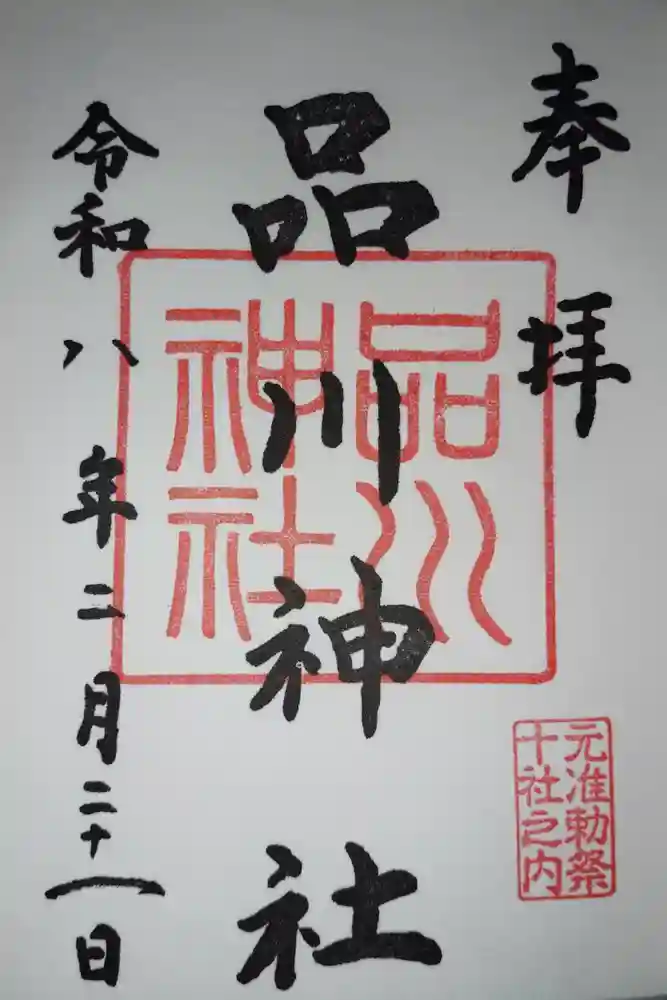 奉拝
品川神社
品川
神社
元准勅祭
十社之内
令和八年二月二十一日